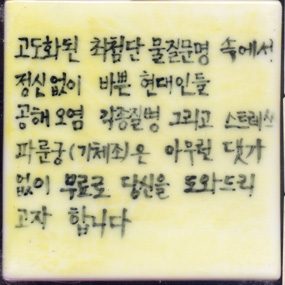 고도화된 최첨단 물질문명 속에서
정신없이 바쁜 현대인들
공해오염 각종질병 그리고 스트레스
파룬궁(가체죄)은 아무런 댓가
없이 무료로 당신을 도와드리
고자 합니다